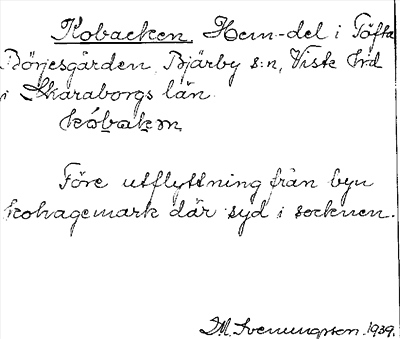 Kobacken, Hem-del i Töfta
Börjesgården, Bjärby s:n, Viste hrd
i Skaraborgs län.
kóbakɐn
Före utflyttning från byn
kohagemark där syd i socknen.
D.M. Svenungsson. 1939.